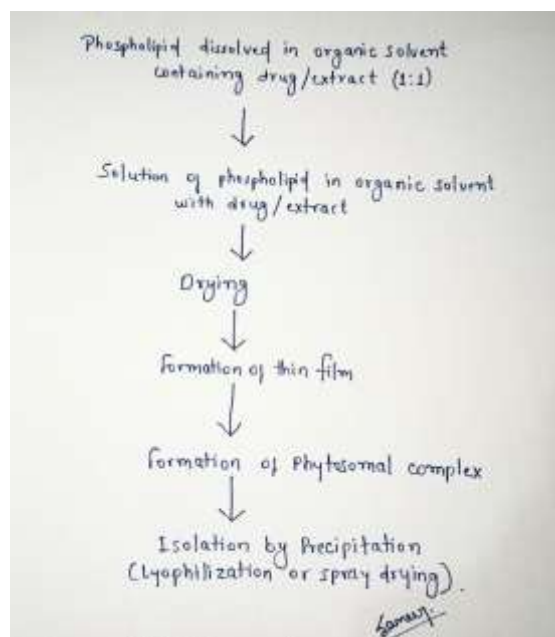 Phospholipid dissolved in organic solvent
containing drug/extract (1:1)
Solution of phospholipid in organic solvent
with drug/extract
Drying
Formation of thin film
Formation of Phytosomal complex
Isolation by Precipitation
(Lyophilization or spray drying).